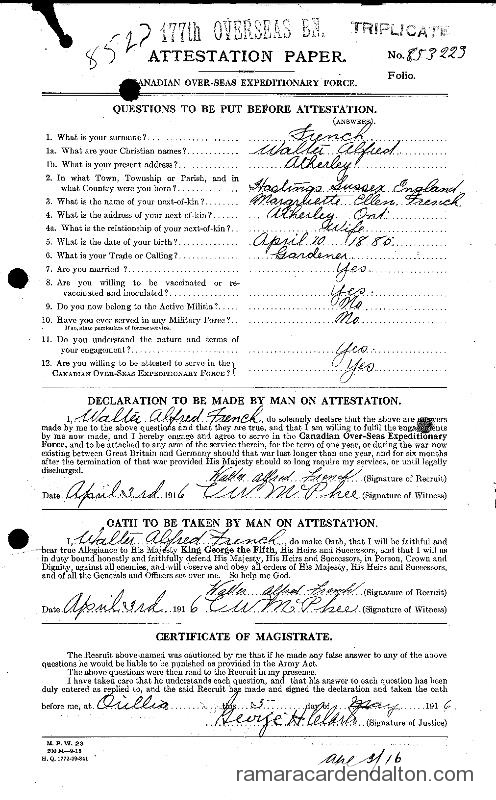 8527 177th OVERSEAS BN. TRIPLICATE
ATTESTATION PAPER. No. 853223
Folio.
CANADIAN OVER-SEAS EXPEDITIONARY FORCE.
QUESTIONS TO BE PUT BEFORE ATTESTATION.
(ANSWERS)
1. What is your surname? French
1a. What are your Christian names? Walter Alfred
1b. What is your present address? Atherley
2. In what Town, Township or Parish, and in
what Country were you born? Hastings Sussex England
3. What is the name of your next-of-kin? Margriette Ellen French
4. What is the address of your next-of-kin? Atherley Ont
4a. What is the relationship of your next-of-kin? Wife
5. What is the date of your birth? April 10 1880
6. What is your Trade or Calling? Gardener
7. Are you married? Yes
8. Are you willing to be vaccinated or re-
vaccinated and inoculated? Yes
9. Do you now belong to the Active Militia? No
10. Have you ever served in any Military Force? No
If so, state particulars of former service.
11. Do you understand the nature and terms of
your engagement? Yes
12. Are you willing to be attested to serve in the
CANADIAN OVER-SEAS EXPEDITIONARY FORCE? Yes
DECLARATION TO BE MADE BY MAN ON ATTESTATION.
I, Walter Alfred French, do solemnly declare that the above are answers
made by me to the above questions and that they are true, and that I am willing to fulfil the engagements
by me now made, and I hereby engage and agree to serve in the Canadian Over-Seas Expeditionary
Force, and to be attached to any arm of the service therein, for the term of one year, or during the war now
existing between Great Britain and Germany should that war last longer than one year, and for six months
after the termination of that war provided His Majesty should so long require my services, or until legally
discharged.
Walter Alfred French (Signature of Recruit)
Date April 3rd 1916 C W McPhee (Signature of Witness)
OATH TO BE TAKEN BY MAN ON ATTESTATION.
I, Walter Alfred French, do make Oath, that I will be faithful and
bear true Allegiance to His Majesty King George the Fifth, His Heirs and Successors, and that I will as
in duty bound honestly and faithfully defend His Majesty, His Heirs and Successors, in Person, Crown and
Dignity, against all enemies, and will observe and obey all orders of His Majesty, His Heirs and Successors,
and of all the Generals and Officers set over me. So help me God.
Walter Alfred French (Signature of Recruit)
Date April 3rd 1916 C W McPhee (Signature of Witness)
CERTIFICATE OF MAGISTRATE.
The Recruit above-named was cautioned by me that if he made any false answer to any of the above
questions he would be liable to be punished as provided in the Army Act.
The above questions were then read to the Recruit in my presence.
I have taken care that he understands each question, and that his answer to each question has been
duly entered as replied to, and the said Recruit has made and signed the declaration and taken the oath
before me, at Orillia this 5 day of May 1916
George H Clark (Signature of Justice)
M. F. W. 23
H. Q. 1772-39-841
3/16
ramaracardendalton.com